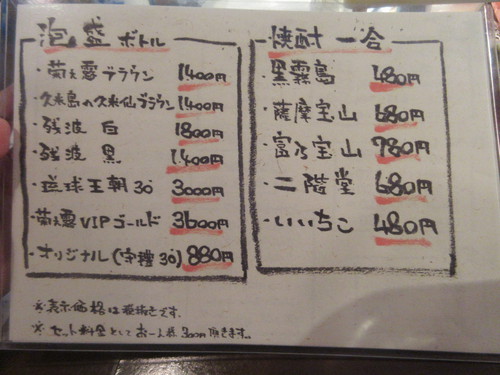 泡盛 ボトル
・菊之露ブラウン 1400円
・久米島の久米仙ブラウン 1400円
・残波 白 1800円
・残波 黒 1400円
・琉球王朝30° 3000円
・菊之露VIPゴールド 3600円
・オリジナル(守禮30°) 880円
焼酎 一合
・黒霧島 480円
・薩摩宝山 680円
・富乃宝山 780円
・二階堂 680円
・いいちこ 480円
※表示価格は税抜きです。
※セット料金としてお一人様300円頂きます。